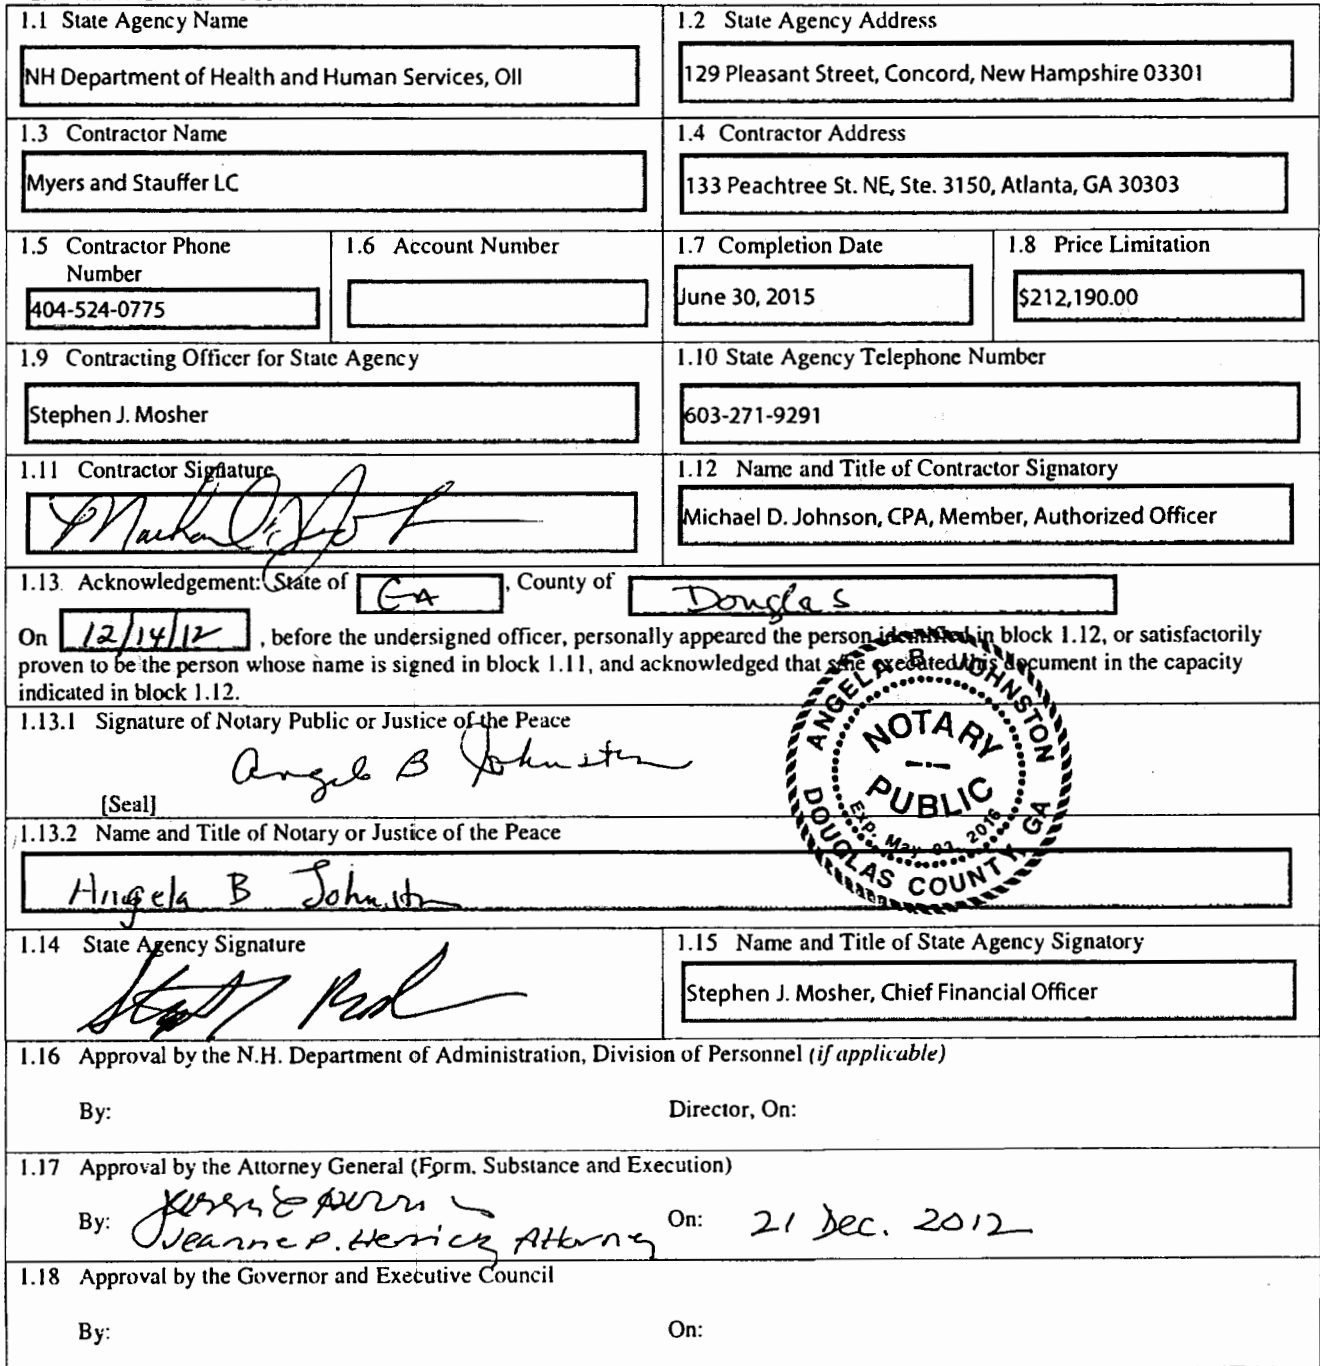 1.1 State Agency Name
NH Department of Health and Human Services, OII
1.2 State Agency Address
129 Pleasant Street, Concord, New Hampshire 03301
1.3 Contractor Name
Myers and Stauffer LC
1.4 Contractor Address
133 Peachtree St. NE, Ste. 3150, Atlanta, GA 30303
1.5 Contractor Phone
Number
404-524-0775
1.6 Account Number
1.7 Completion Date
June 30, 2015
1.8 Price Limitation
$212,190.00
1.9 Contracting Officer for State Agency
Stephen J. Mosher
1.10 State Agency Telephone Number
603-271-9291
1.11 Contractor Signature
1.12 Name and Title of Contractor Signatory
Michael D. Johnson, CPA, Member, Authorized Officer
1.13 Acknowledgement: State of GA, County of Douglas
On 12/14/12, before the undersigned officer, personally appeared the person identified in block 1.12, or satisfactorily
proven to be the person whose name is signed in block 1.11, and acknowledged that s/he executed this document in the capacity
indicated in block 1.12.
1.13.1 Signature of Notary Public or Justice of the Peace
Angela B Johnston
[Seal]
ANGELA B. JOHNSTON
NOTARY
PUBLIC
Exp. May 03, 2016
DOUGLAS COUNTY, GA
1.13.2 Name and Title of Notary or Justice of the Peace
Angela B Johnston
1.14 State Agency Signature
1.15 Name and Title of State Agency Signatory
Stephen J. Mosher, Chief Financial Officer
1.16 Approval by the N.H. Department of Administration, Division of Personnel (if applicable)
By:
Director, On:
1.17 Approval by the Attorney General (Form, Substance and Execution)
By:
Jeanne P. Herrick Attorney
On: 21 Dec. 2012
1.18 Approval by the Governor and Executive Council
By:
On: